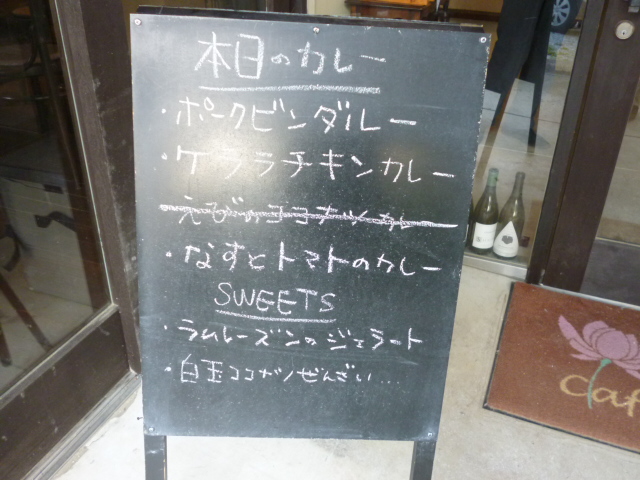 本日のカレー
・ポークビンダルー
・ケララチキンカレー
・えびのココナッツカレー
・なすとトマトのカレー
SWEETS
・ラムレーズンのジェラート
・白玉ココナツぜんざい...
Caf